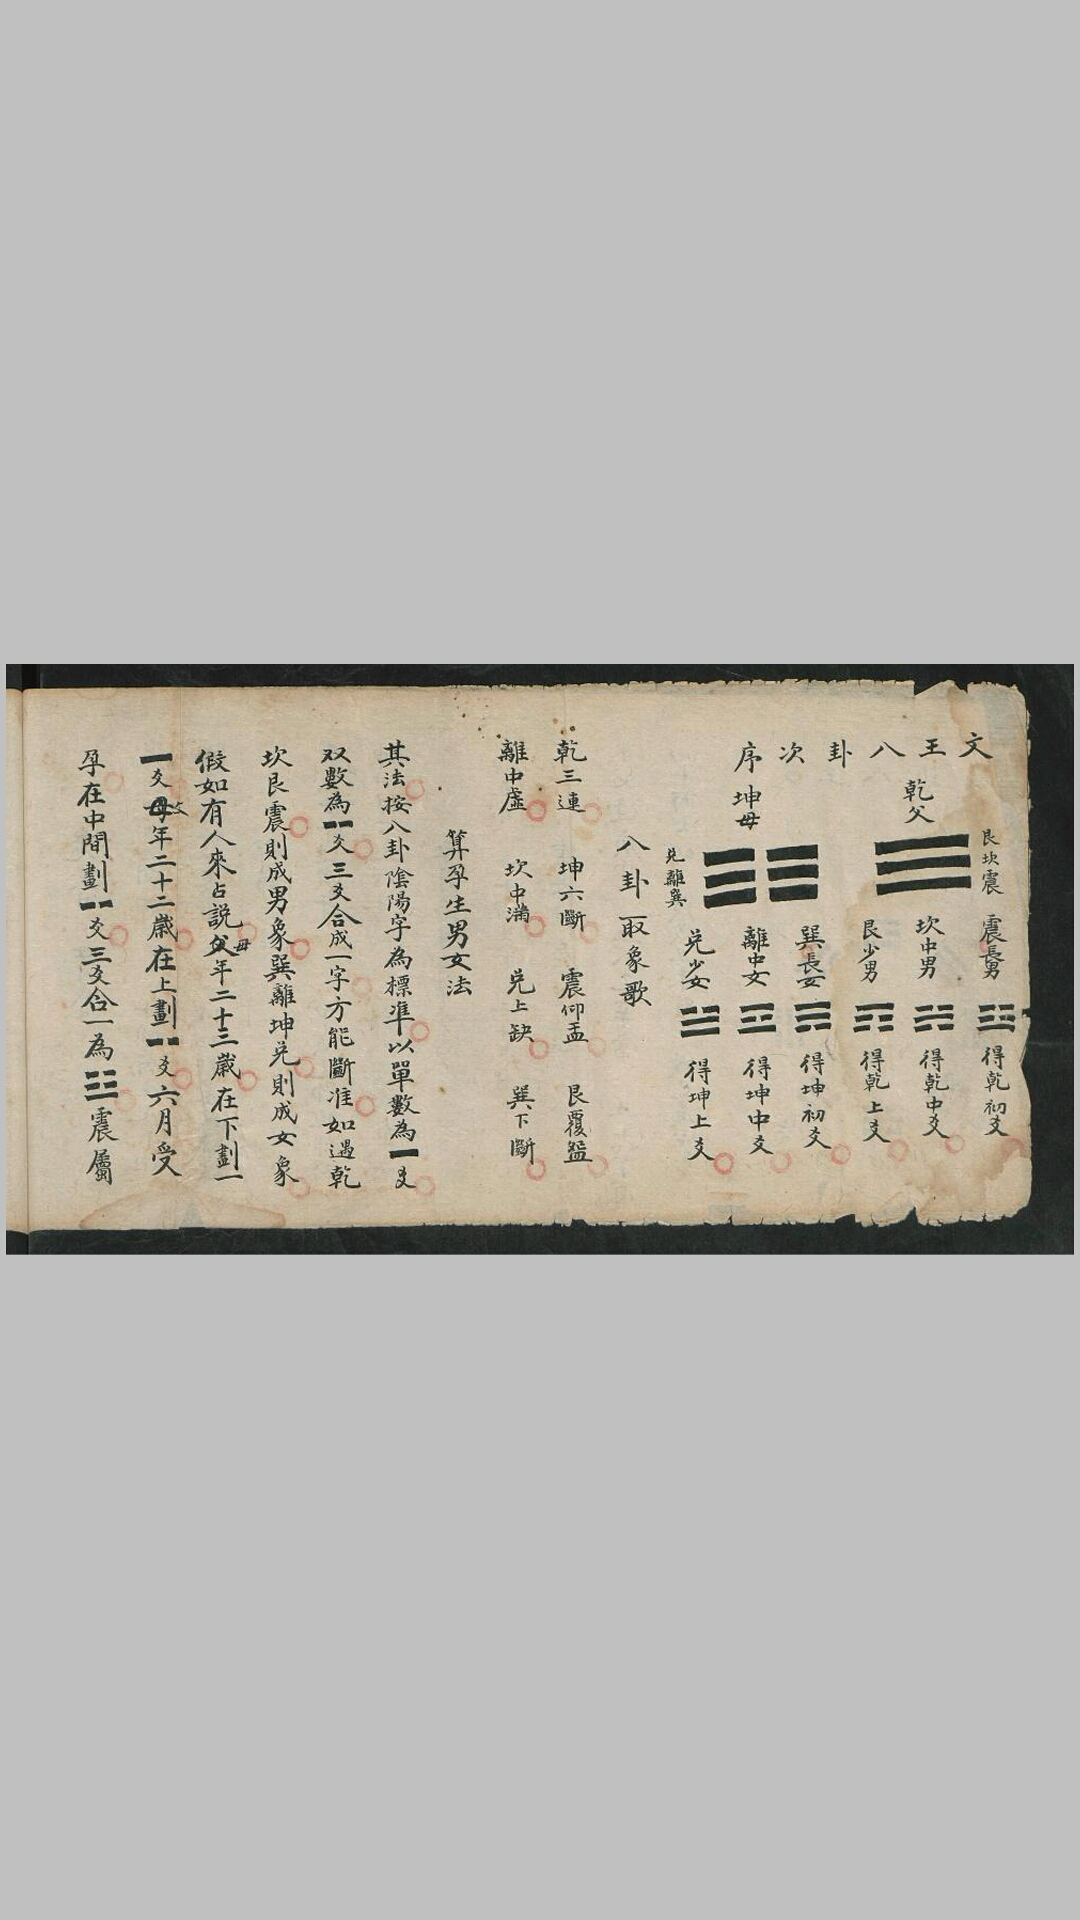 文王八卦次序
乾父
艮坎震
震長男 ☳ 得乾初爻
坎中男 ☵ 得乾中爻
艮少男 ☶ 得乾上爻
坤母
兌離巽
巽長女 ☴ 得坤初爻
離中女 ☲ 得坤中爻
兌少女 ☱ 得坤上爻
八卦取象歌
乾三連 坤六斷 震仰盂 艮覆盌
離中虛 坎中滿 兌上缺 巽下斷
算孕生男女法
其法按八卦陰陽字為標準以單數為⚊爻
双數為⚋爻三爻合成一字方能斷准如遇乾
坎艮震則成男象巽離坤兌則成女象
假如有人來占說父母年二十三歲在下劃一
⚊爻母父年二十二歲在上劃⚋爻六月受
孕在中間劃⚋爻三爻合一為☳震屬